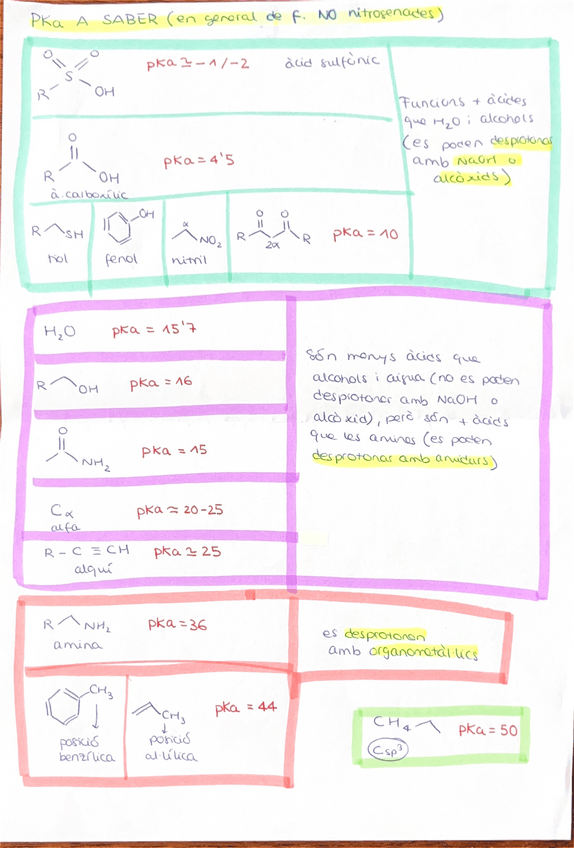 PKa A SABER (en general de f. NO nitrogenades)
O O
S
R OH
pKa ≃ -1/-2 àcid sulfònic
O
R OH
à. carboxílic
pKa = 4'5
Funcions + àcides
que H2O i alcohols
(es poden desprotonar
amb NaOH o
alcòxids)
R SH
tiol
OH
fenol
α
NO2
nitril
O O
R R
2α
pKa = 10
H2O pKa = 15'7
R OH pKa = 16
O
NH2
pKa = 15
Cα pKa ≈ 20-25
alfa
R - C ≡ CH pKa ≃ 25
alquí
Són menys àcids que
alcohols i aigua (no es poden
desprotonar amb NaOH o
alcòxid), però són + àcids
que les amines (es poden
desprotonar amb amidurs)
R NH2 pKa = 36
amina
es desprotonen
amb organometàl·lics
CH3
posició
benzílica
CH3
posició
al·lílica
pKa = 44
CH4 pKa = 50
Csp3